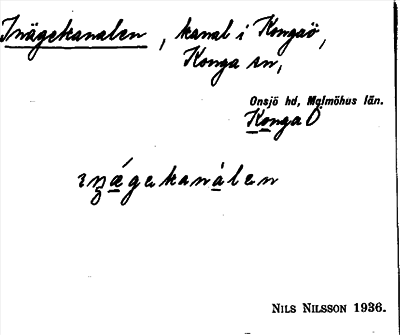 Inägekanalen, kanal i Kongaö,
Konga sn,
Onsjö hd, Malmöhus län.
Konga Ö
ɪnägekanalen
NILS NILSSON 1936.